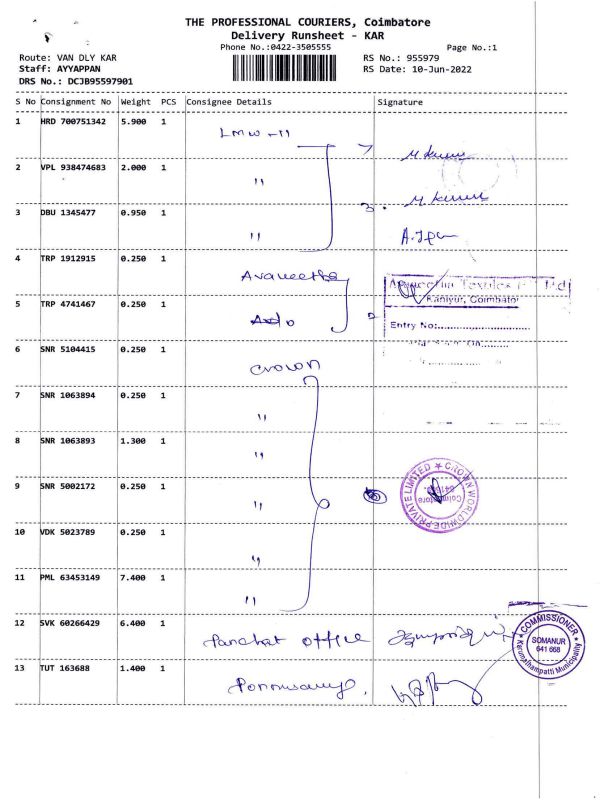 THE PROFESSIONAL COURIERS, Coimbatore
Delivery Runsheet - KAR
Phone No.:0422-3505555
Page No.:1
Route: VAN DLY KAR
RS No.: 955979
Staff: AYYAPPAN
RS Date: 10-Jun-2022
DRS No.: DCJB95597901
S No Consignment No Weight PCS Consignee Details Signature
1 HRD 700751342 5.900 1 LMW -11
2 VPL 938474683 2.000 1 "
3 DBU 1345477 0.950 1 "
4 TRP 1912915 0.250 1 Avaneetha
Textiles
Kaniyur, Coimbator
5 TRP 4741467 0.250 1
Entry No:
6 SNR 5104415 0.250 1 Crown
7 SNR 1063894 0.250 1 "
8 SNR 1063893 1.300 1 "
9 SNR 5002172 0.250 1 "
CROWN WORLDWIDE PRIVATE LIMITED
Coimbatore
10 VDK 5023789 0.250 1 "
11 PML 63453149 7.400 1 "
12 SVK 60266429 6.400 1 Panchat office
COMMISSIONER
SOMANUR
641 668
Karumathampatti Municipality
13 TUT 163688 1.400 1 Ponnusamy,